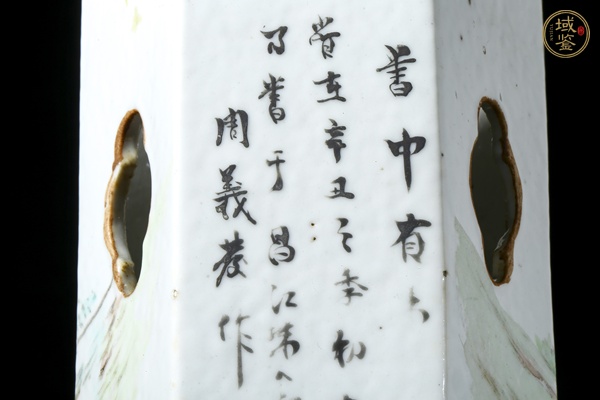 書中有
時在辛丑之季初
書于昌江
周義發作
域鑒